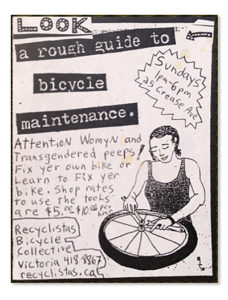 LOOK
a rough guide to
bicycle
maintenance.
Sundays
1pm-6pm
25 Crease Ave
Attention Womyn and
Transgendered peeps!
Fix yer own bike or
Learn to Fix yer
bike. Shop rates
to use the tools
are $5.00 $10.00 per
hour
Recyclistas
Bicycle
Collective
Victoria 418 8867
recyclistas.ca